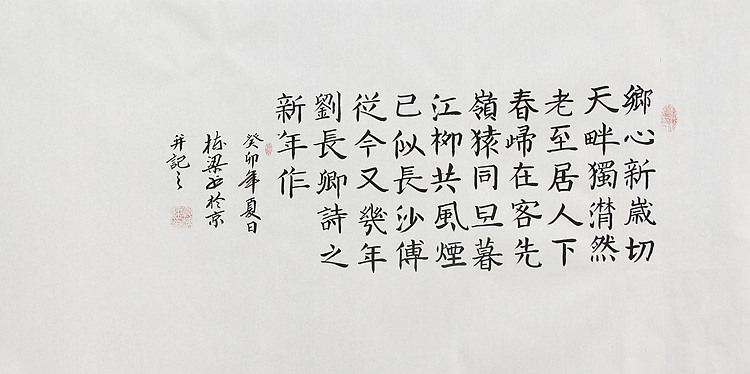 鄉心新歲切
天畔獨潸然
老至居人下
春歸在客先
嶺猿同旦暮
江柳共風煙
已似長沙傅
從今又幾年
劉長卿詩之
新年作
癸卯年夏日
棟梁書於京
并記之